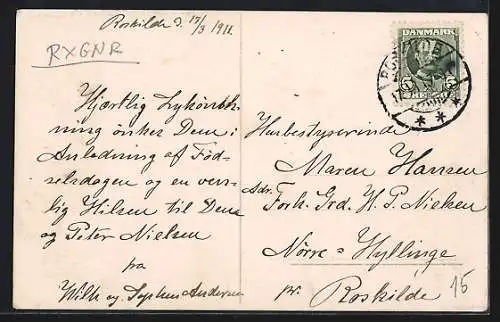 Roskilde d. 17/3 1911.
RXGNR
Hjærtlig Lykønsk-
ning ønsker Dem i
Anledning af Fød-
selsdagen og en ven-
lig Hilsen til Dem
og Peter Nielsen
fra
og Andersen
DANMARK
5
Husbestyrerinde
Maren Hansen
Adr. Forh. Grd. H. P. Nielsen
Nörre = Hyllinge
pr. Roskilde
15